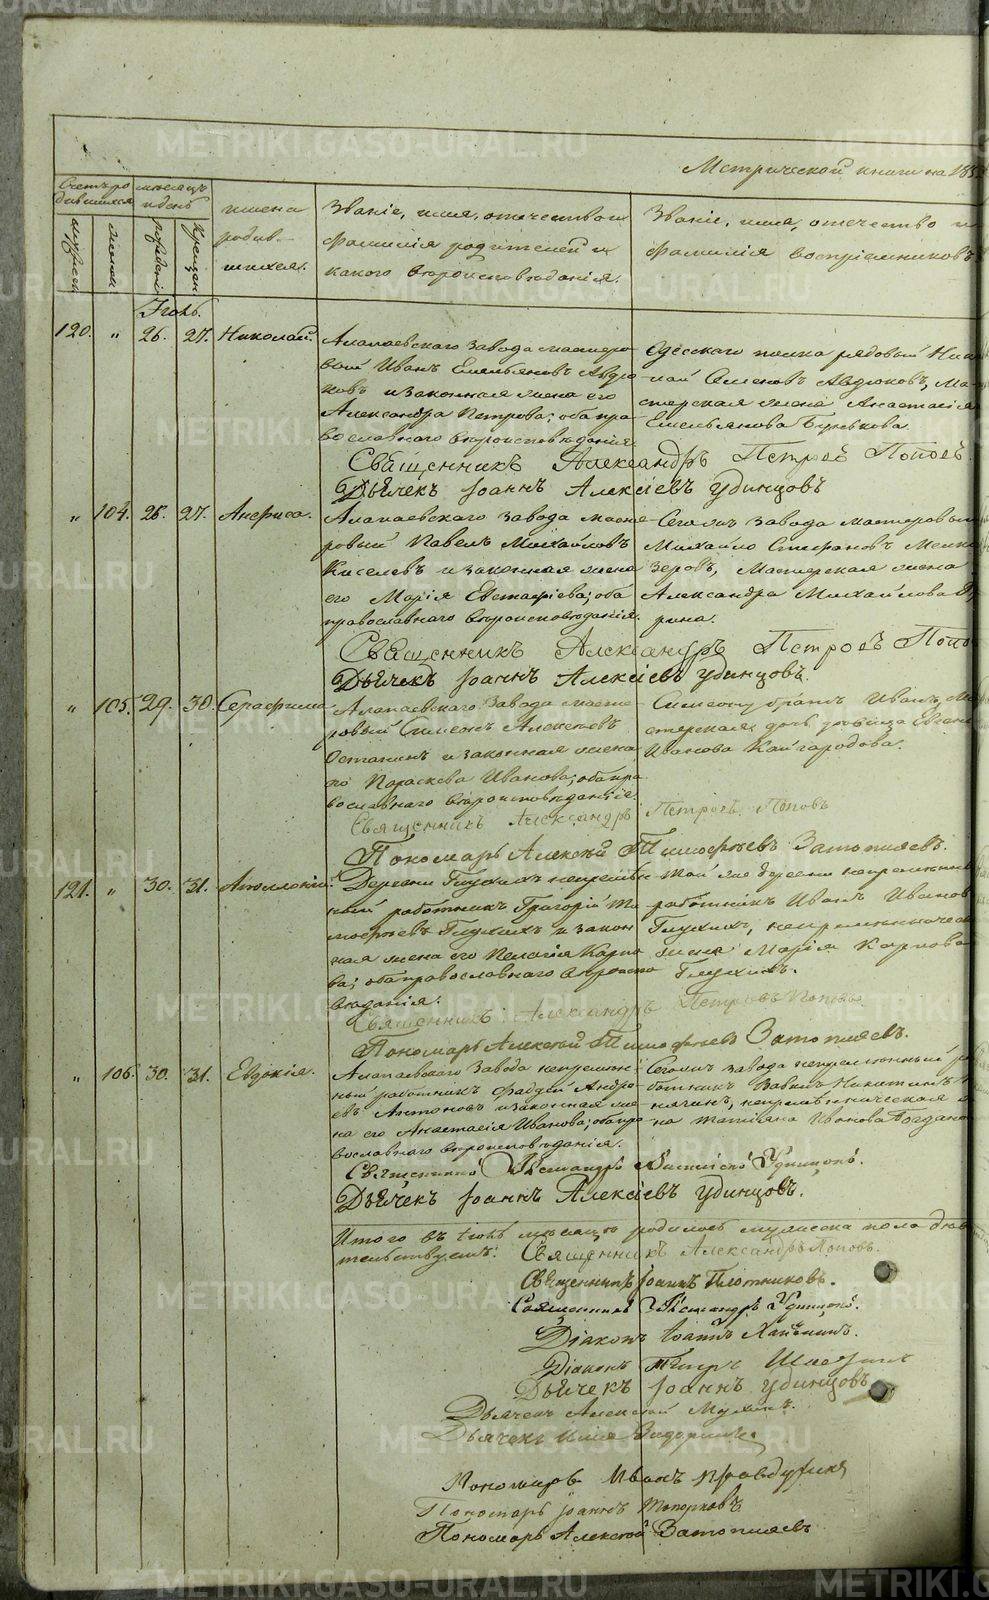 METRIKI.GASO-URAL.RU
Метрической книги на 185
Счетъ ро
дившихся
мужеска
женска
мѣсяцъ
и день
рожденія
крещен
имена
родив-
шихся.
Званіе, имя, отечество и
фамилія родителей и
какого вѣроисповѣданія.
Званіе, имя, отечество и
фамилія воспріемниковъ
Іюль.
120. „ 26. 27. Николай.
Алапаевскаго завода мастеро-
вой Иванъ Емельяновъ Авдю
ковъ и законная жена его
Александра Петрова; оба пра
вославнаго вѣроисповѣданія.
Одесскаго полка рядовый Нико
лай Семеновъ Авдюковъ, Ма-
стерская жена Анастасія
Емельянова Бунькова.
Священникъ Александръ Петровъ Поповъ.
Дьячекъ Іоаннъ Алексѣевъ Удинцовъ
„ 104. 25. 27. Анфиса.
Алапаевскаго завода масте-
ровый Павелъ Михайловъ
Киселевъ и законная жена
его Марія Евстафіева; оба
православнаго вѣроисповѣданія.
Сегожъ завода мастеровый
Михайло Стефановъ
зеровъ, Мастерская жена
Александра Михайлова
рина.
Священникъ Александръ Петровъ Попо
Дьячекъ Іоаннъ Алексѣевъ Удинцовъ.
„ 105. 29. 30. Серафима
Алапаевскаго завода масте-
ровый Симеонъ Алексѣевъ
Останинъ и законная жена
его Параскева Иванова; оба пра
вославнаго вѣроисповѣданія.
Симеону братъ Иванъ, Ма
стерская дочь дѣвица Евген
Иванова Кайгородова.
Священникъ Александръ Петровъ Поповъ
Пономарь Алексѣй Тимофѣевъ Затопляевъ.
121. „ 30. 31. Аполлоній.
Деревни Глухихъ непремѣн
ный работникъ Григорій Ти
мофѣевъ Глухихъ и закон
ная жена его Пелагія Карпо
ва; оба православнаго вѣроиспо
вѣданія.
Той же деревни непремѣнный
работникъ Иванъ Иванов
Глухихъ, непремѣнническая
жена Марія Карпова
Глухихъ.
Священникъ Александръ Петровъ Поповъ
Пономарь Алексѣй Тимофѣевъ Затопляевъ.
„ 106. 30. 31. Евдокія.
Алапаевскаго завода непремѣн
ный работникъ Фаддей Андре-
евъ Антоновъ и законная же-
на его Анастасія Иванова; оба пра
вославнаго вѣроисповѣданія.
Сегожъ завода непремѣнный ра
ботникъ Никитинъ
непремѣнническая
на Татіана Иванова Богдано
Священникъ Александръ Удинцовъ.
Дьячекъ Іоаннъ Алексѣевъ Удинцовъ.
Итого въ Іюлѣ мѣсяцѣ родилось мужеска пола
тельствуемъ: Священникъ Александръ Поповъ.
Священникъ Іоаннъ Плотниковъ.
Священникъ Александръ Удинцовъ.
Діаконъ Іоаннъ
Діаконъ Петръ
Дьячекъ Іоаннъ Удинцовъ
Дьячекъ Алексѣй
Дьячекъ Илія
Пономарь Иванъ Правдухинъ
Пономарь Іоаннъ Топорковъ
Пономарь Алексѣй Затопляевъ